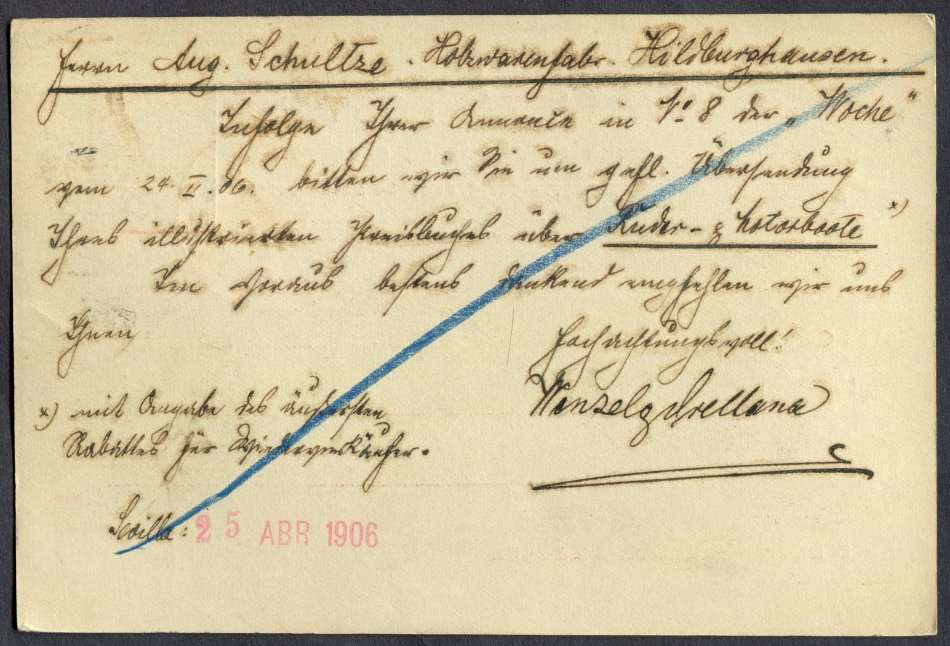 Herrn Aug. Schultze. Holzwarenfabr. Hildburghausen.
Infolge Ihrer Annonce in No 8 der „Woche“
vom 24. II. 06. bitten wir Sie um gefl. Übersendung
Ihres illustrierten Preisbuches über Ruder- & Motorboote x)
Im Voraus bestens dankend empfehlen wir uns
Ihnen
Hochachtungsvoll!
Wenzel & Orellana
x) mit Angabe des äußersten
Rabattes für Wiederverkäufer.
Sevilla: 25 ABR 1906